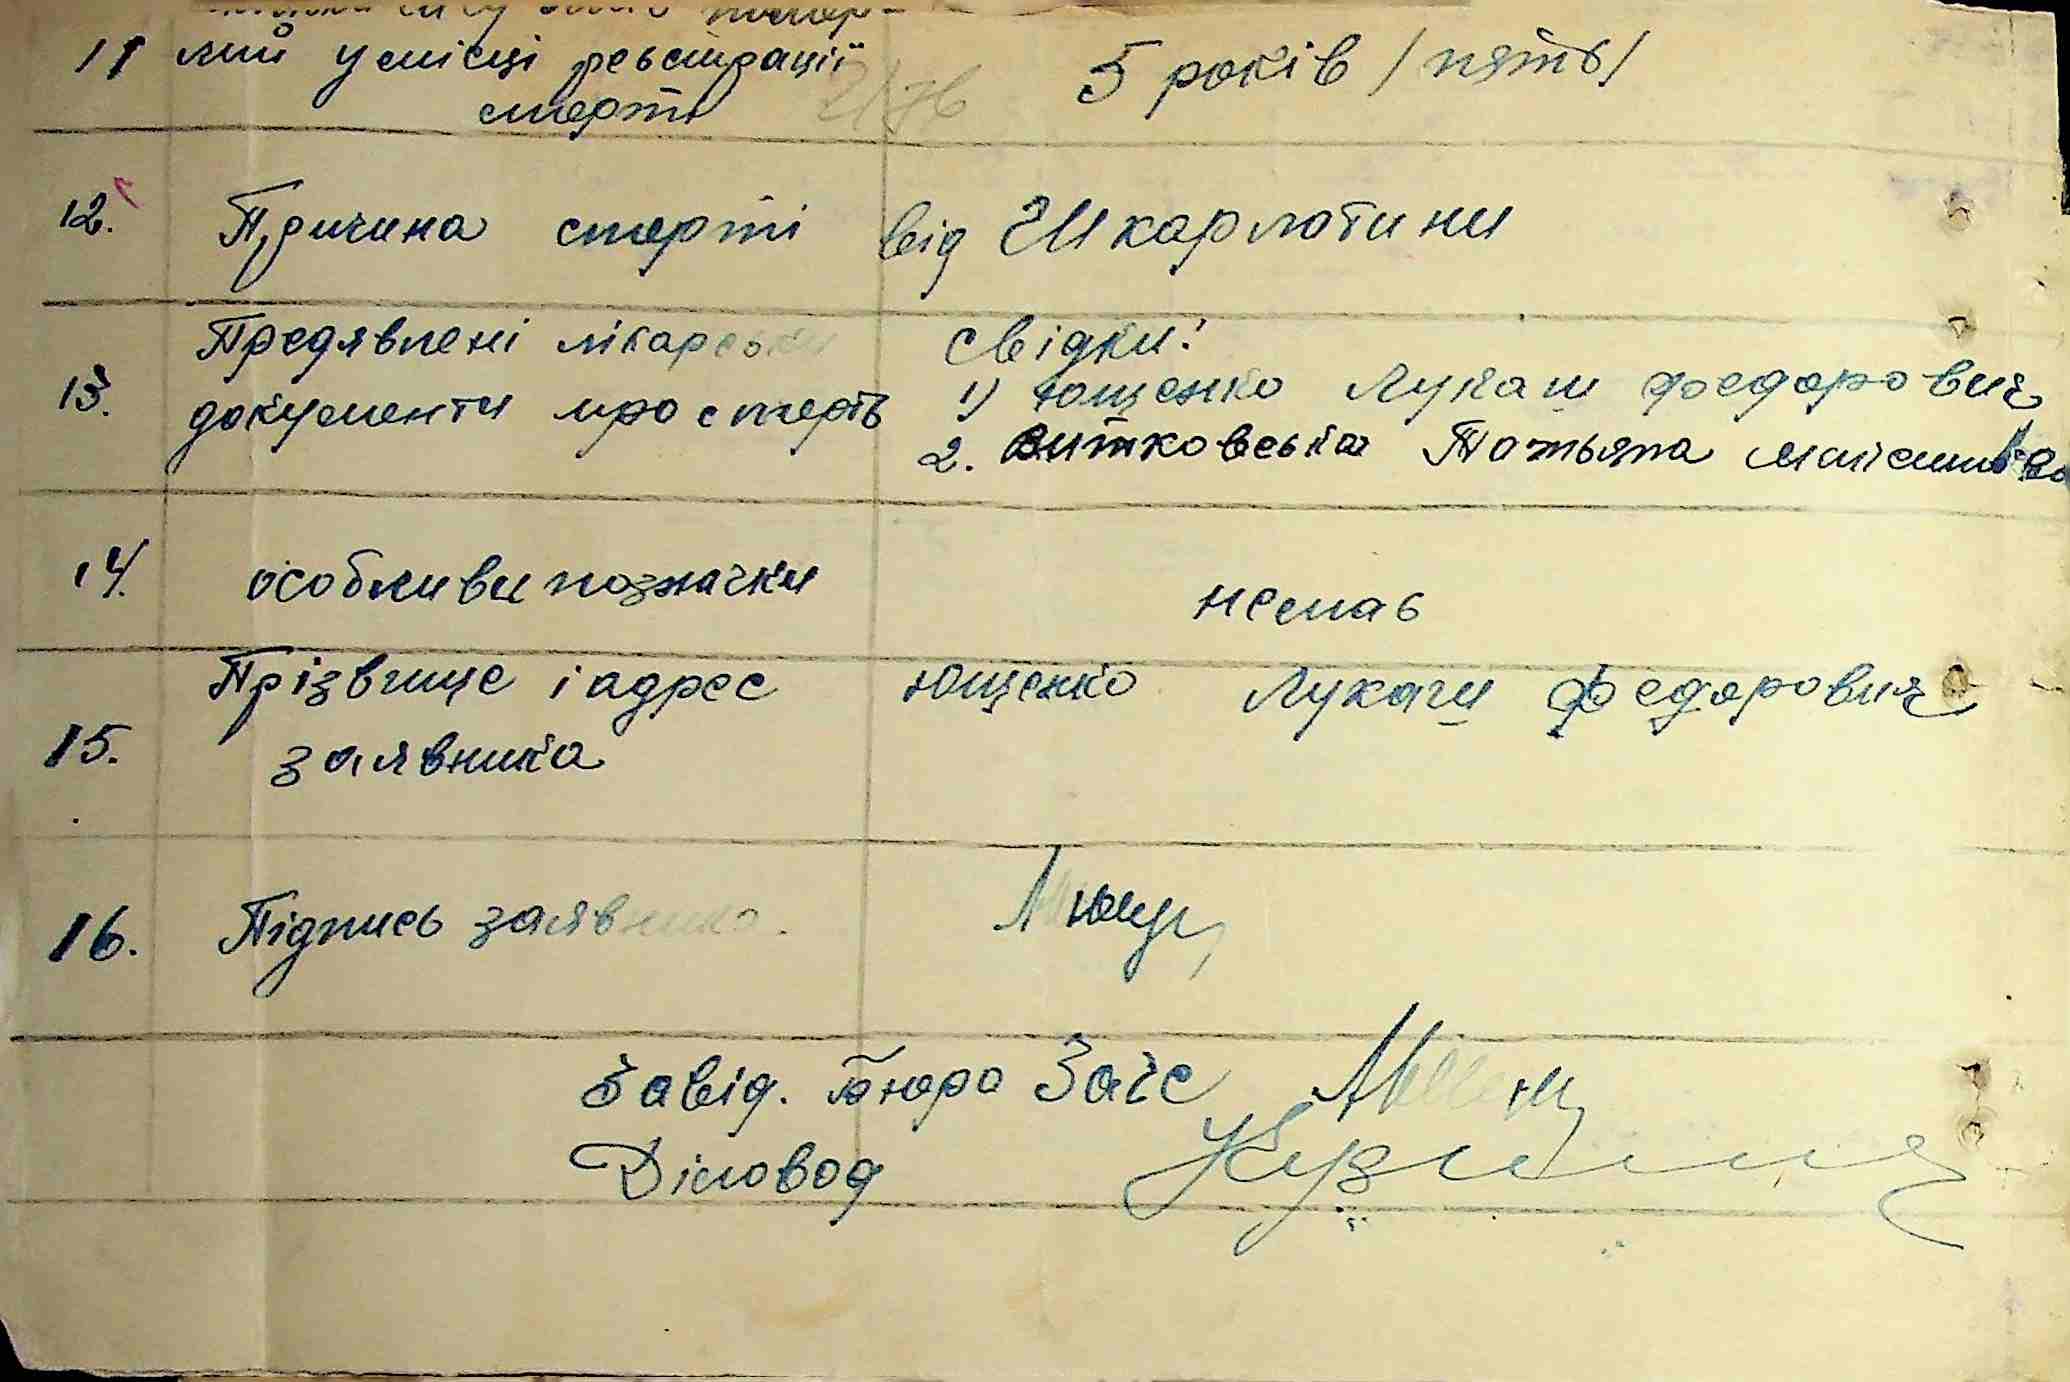 11 лий у місці реєстрації смерті
5 років / пять /
12. Причина смерті
від Шкарлатини
13. Предявлені лікарськи
документи про смерть
Свідки:
1) Ющенко Лукаш Федорович
2. Витковська Татьяна Максимівна
14. особливи позначки
немає
15. Прізвище і адрес
заявника
Ющенко Лукаш Федорович
16. Підпись заявника.
Л Ющ
Завід. бюро Загс
Діловод